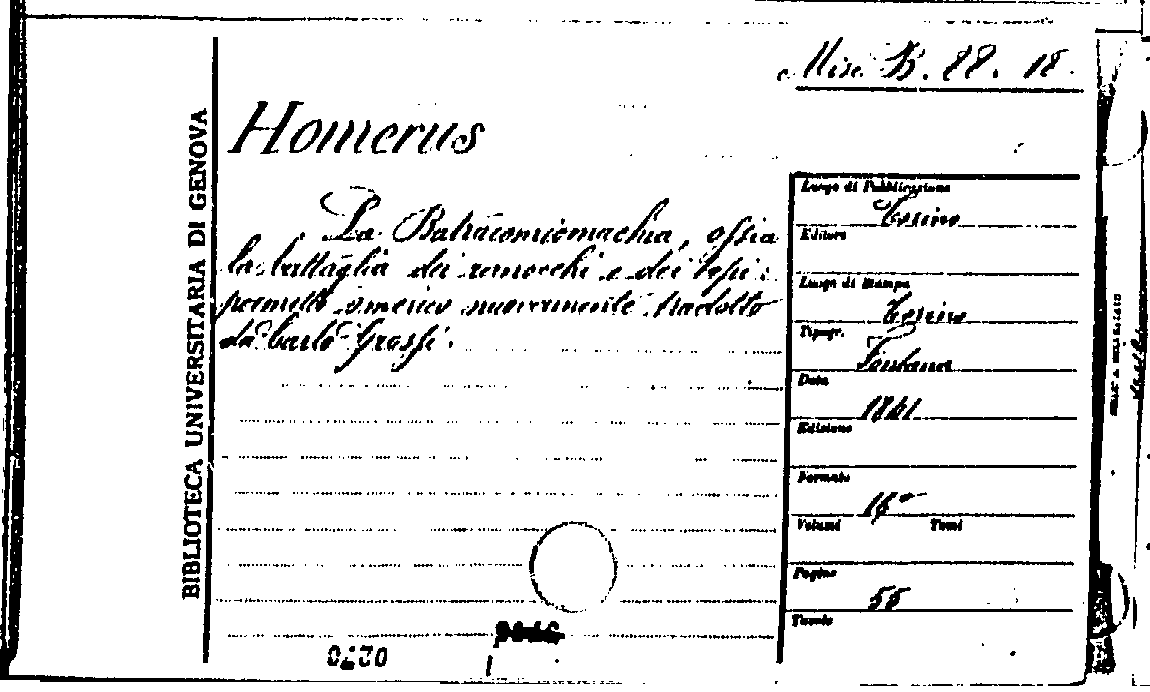 Misc. B. 22. 18.
BIBLIOTECA UNIVERSITARIA DI GENOVA
Homerus
La Batracomiomachia, ossia
la battaglia dei ranocchi e dei topi:
poemetto omerico nuovamente tradotto
da Carlo Grossi.
Luogo di Pubblicazione
Torino
Editore
Luogo di Stampa
Torino
Tipogr.
Fontana
Data
1841
Edizione
Formato
16°
Volumi Tomi
Pagine
55
Tavole